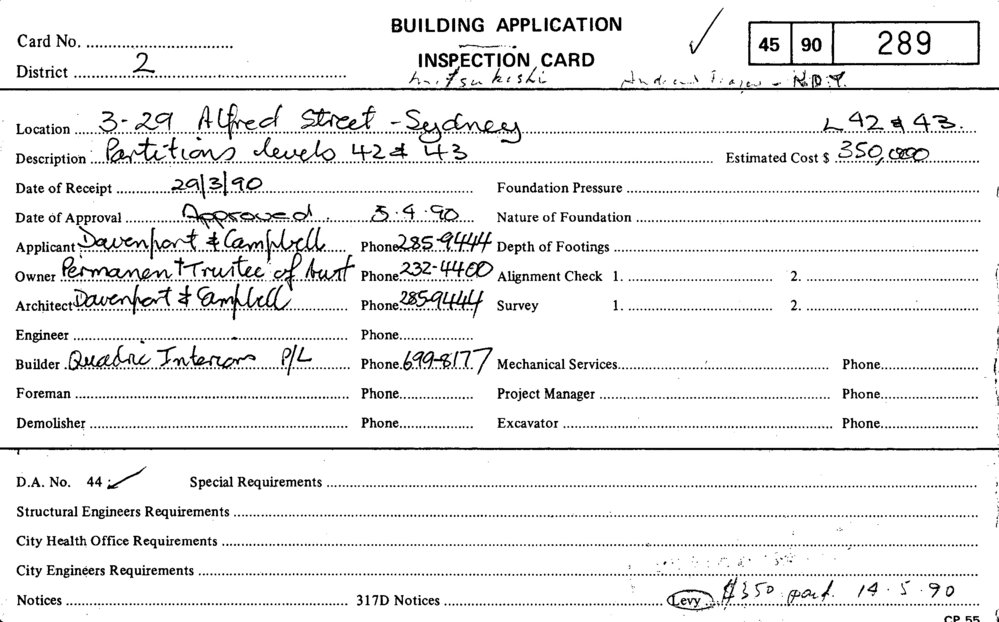 BUILDING APPLICATION
Card No.
INSPECTION CARD
45 90 289
District 2
Location 3-29 Alfred Street - Sydney L 42 & 43.
Description Partitions levels 42 & 43 Estimated Cost $ 350,000
Date of Receipt 29/3/90 Foundation Pressure
Date of Approval Approved 5.4.90 Nature of Foundation
Applicant Davenport & Campbell Phone 285-9444 Depth of Footings
Owner Permanent Trustee of Aust Phone 232-4400 Alignment Check 1. 2.
Architect Davenport & Campbell Phone 285-9444 Survey 1. 2.
Engineer Phone
Builder Quadric Interiors P/L Phone 699-8177 Mechanical Services Phone
Foreman Phone Project Manager Phone
Demolisher Phone Excavator Phone
D.A. No. 44 Special Requirements
Structural Engineers Requirements
City Health Office Requirements
City Engineers Requirements
Notices 317D Notices Levy $350 14.5.90
CP 55